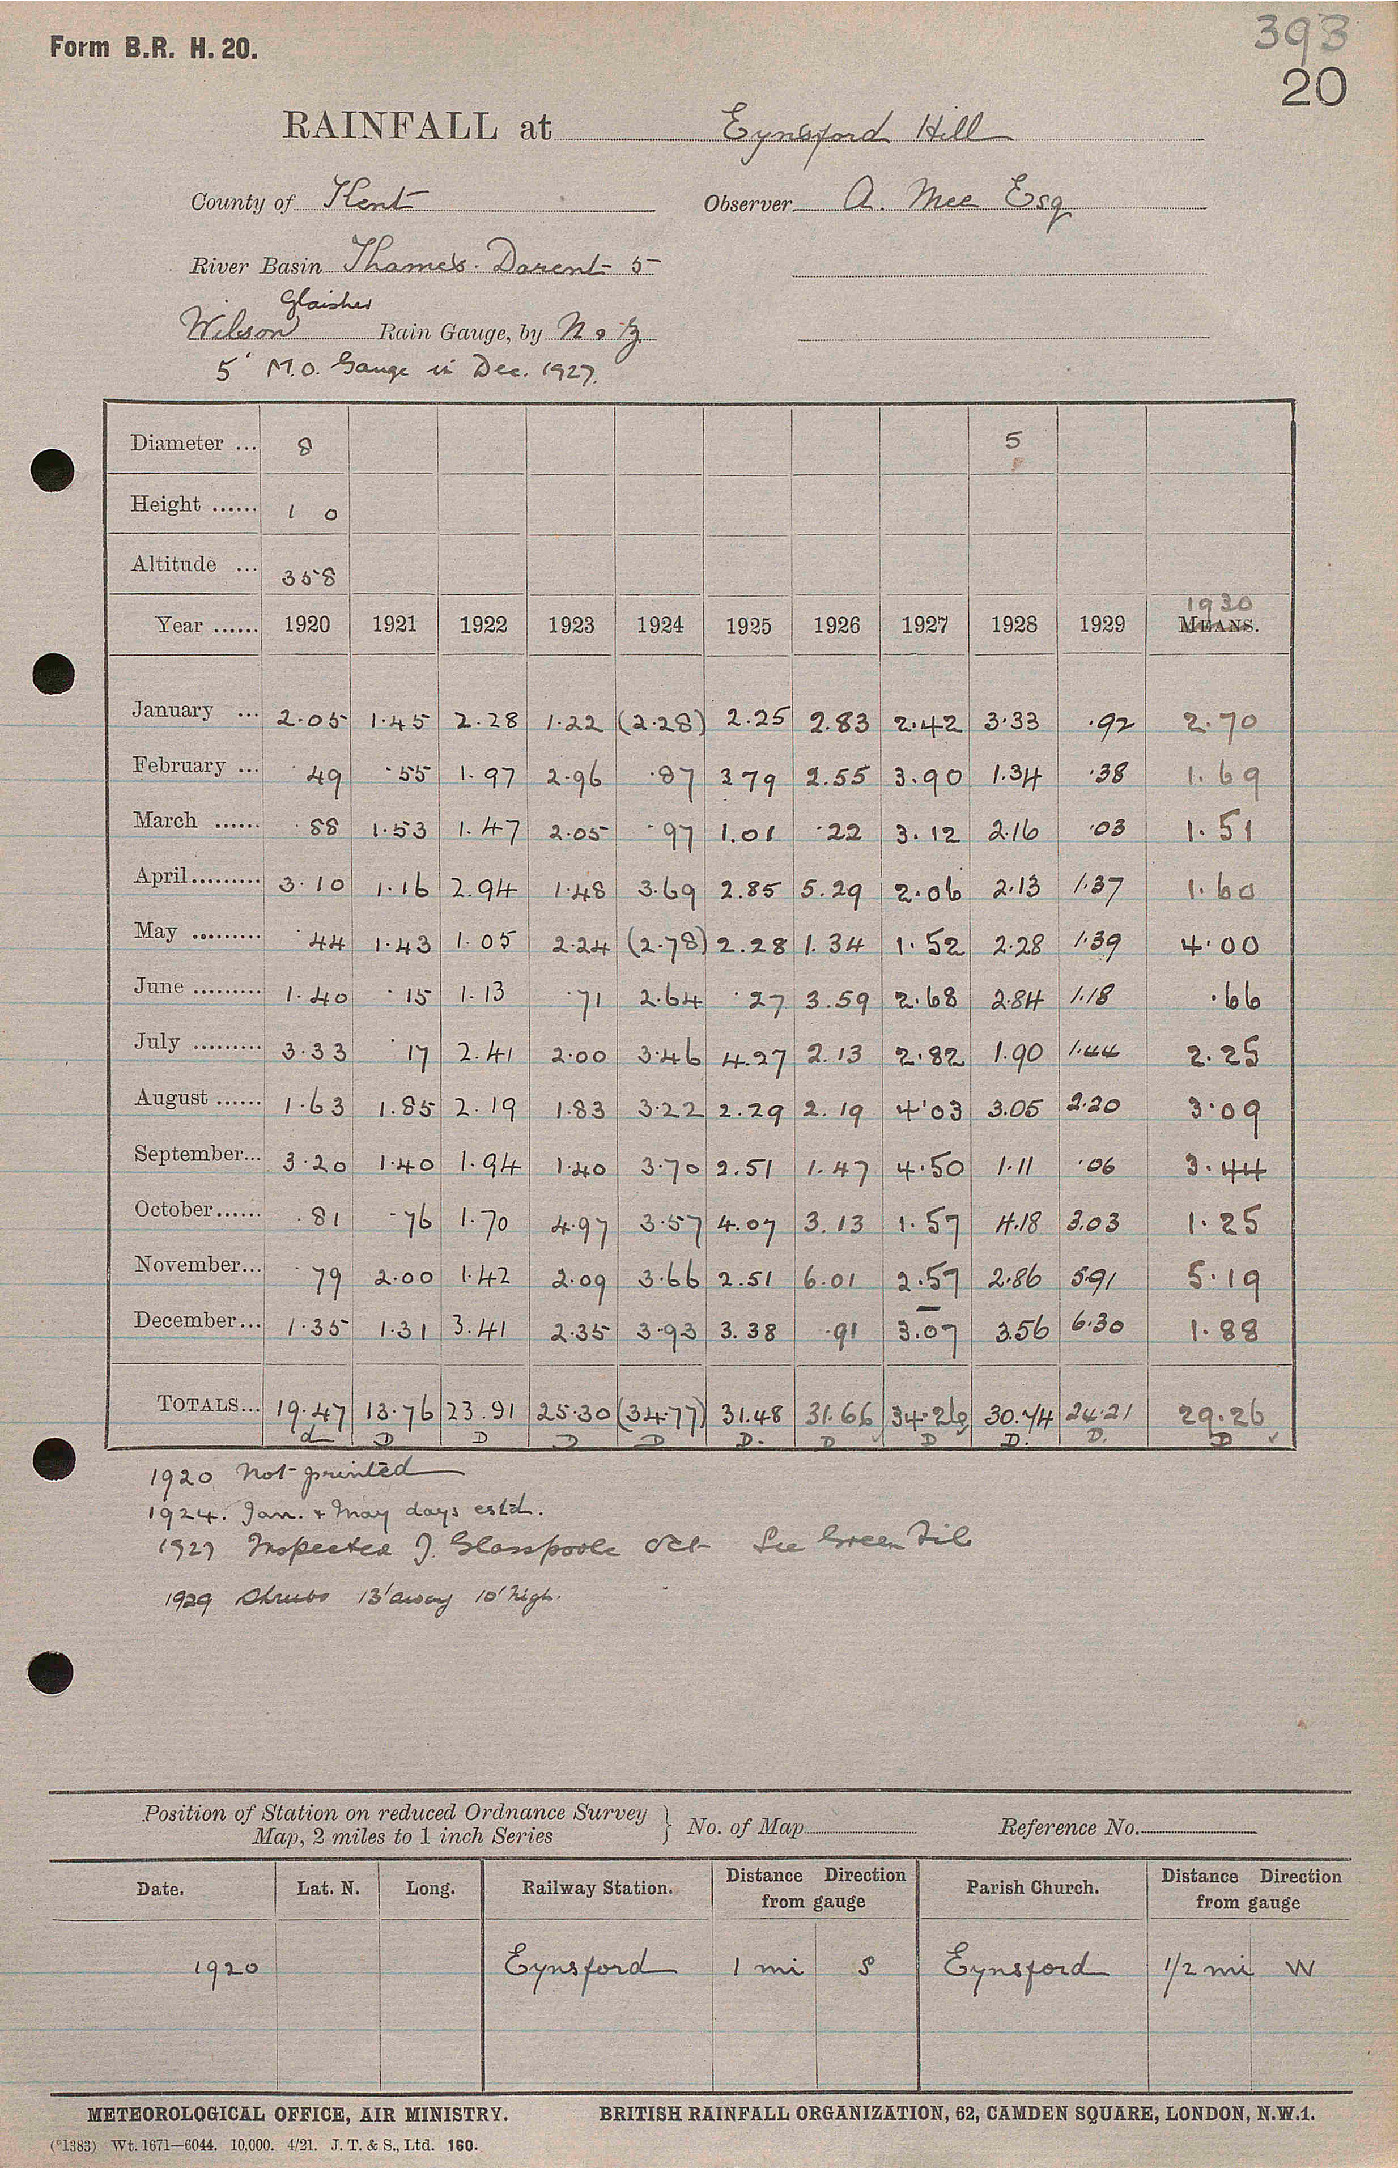 Form B.R. H. 20.
393
20
RAINFALL at Eynsford Hill
County of Kent Observer A. Mee Esq
River Basin Thames. Darent 5
Glaisher
Wilson Rain Gauge, by N & Z
5" M.O. Gauge in Dec. 1927.
Diameter ... 8 5
Height ...... 1 0
Altitude ... 358
1930
Year ...... 1920 1921 1922 1923 1924 1925 1926 1927 1928 1929 MEANS.
January ... 2.05 1.45 2.28 1.22 (2.28) 2.25 2.83 2.42 3.33 .92 2.70
February ... .49 .55 1.97 2.96 .87 3.79 2.55 3.90 1.34 .38 1.69
March ...... .88 1.53 1.47 2.05 .97 1.01 .22 3.12 2.16 .03 1.51
April ......... 3.10 1.16 2.94 1.48 3.69 2.85 5.29 2.06 2.13 1.37 1.60
May ......... .44 1.43 1.05 2.24 (2.78) 2.28 1.34 1.52 2.28 1.39 4.00
June ......... 1.40 .15 1.13 .71 2.64 .27 3.59 2.68 2.84 1.18 .66
July ......... 3.33 .17 2.41 2.00 3.46 4.27 2.13 2.82 1.90 1.44 2.25
August ...... 1.63 1.85 2.19 1.83 3.22 2.29 2.19 4.03 3.05 2.20 3.09
September... 3.20 1.40 1.94 1.40 3.70 2.51 1.47 4.50 1.11 .06 3.44
October...... .81 .76 1.70 4.97 3.57 4.07 3.13 1.57 4.18 3.03 1.25
November... .79 2.00 1.42 2.09 3.66 2.51 6.01 2.57 2.86 5.91 5.19
December... 1.35 1.31 3.41 2.35 3.93 3.38 .91 3.07 3.56 6.30 1.88
TOTALS... 19.47 13.76 23.91 25.30 (34.77) 31.48 31.66 34.26 30.74 24.21 29.26
d D D D D D. D D D. D. D
1920 Not printed
1924. Jan. & May days est'd.
1927 Inspected J. Glasspoole Oct See Green File
1929 Shrubs 13' away 10' high.
Position of Station on reduced Ordnance Survey
Map, 2 miles to 1 inch Series } No. of Map Reference No.
Date. Lat. N. Long. Railway Station. Distance Direction from gauge Parish Church. Distance Direction from gauge
1920 Eynsford 1 mi S Eynsford 1/2 mi W
METEOROLOGICAL OFFICE, AIR MINISTRY. BRITISH RAINFALL ORGANIZATION, 62, CAMDEN SQUARE, LONDON, N.W.1.
(*1383) Wt. 1671—6044. 10,000. 4/21. J. T. & S., Ltd. 160.